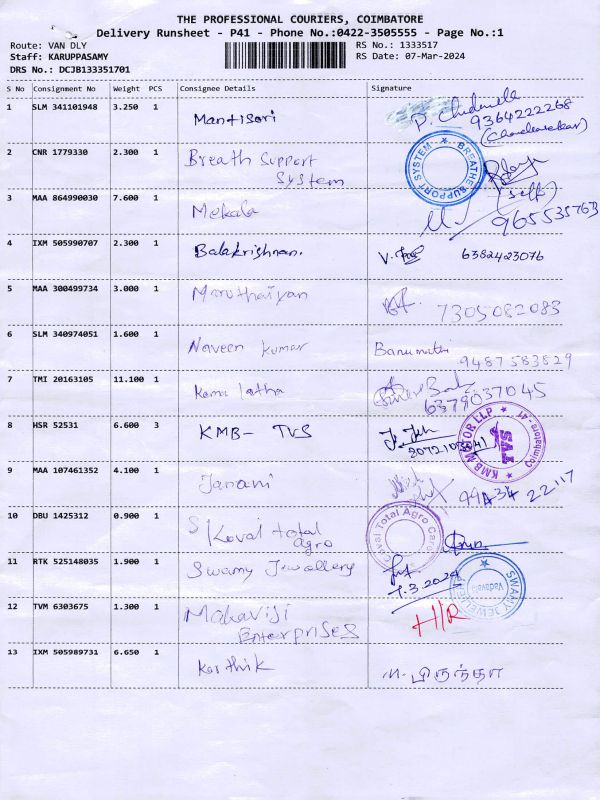 THE PROFESSIONAL COURIERS, COIMBATORE
Delivery Runsheet - P41 - Phone No.:0422-3505555 - Page No.:1
Route: VAN DLY
Staff: KARUPPASAMY
DRS No.: DCJB133351701
RS No.: 1333517
RS Date: 07-Mar-2024
S No Consignment No Weight PCS Consignee Details Signature
1 SLM 341101948 3.250 1 Mantisori
9364222268
2 CNR 1779330 2.300 1 Breath Support
System
BREATHE SUPPORT SYSTEM
(self)
3 MAA 864990030 7.600 1 Mekala
4 IXM 505990707 2.300 1 Balakrishnan. 6382423076
5 MAA 300499734 3.000 1 Maruthaiyan 7305082083
6 SLM 340974051 1.600 1 Naveen Kumar Banumathi
9487583829
7 TMI 20163105 11.100 1 Kema latha
6379037045
8 HSR 52531 6.600 3 KMB- TVS
KMB MOTOR LLP
TVS
Coimbatore - 41
9 MAA 107461352 4.100 1 Janani 99434 22117
10 DBU 1425312 0.900 1 Koval total
agro
Koval Total Agro Care
11 RTK 525148035 1.900 1 Swamy Jewellery
7.3.2024
SWAMY JEWELLERY
12 TVM 6303675 1.300 1 Mahaviji
Enterprises
H/R
13 IXM 505989731 6.650 1 Karthik M. பிருந்தா